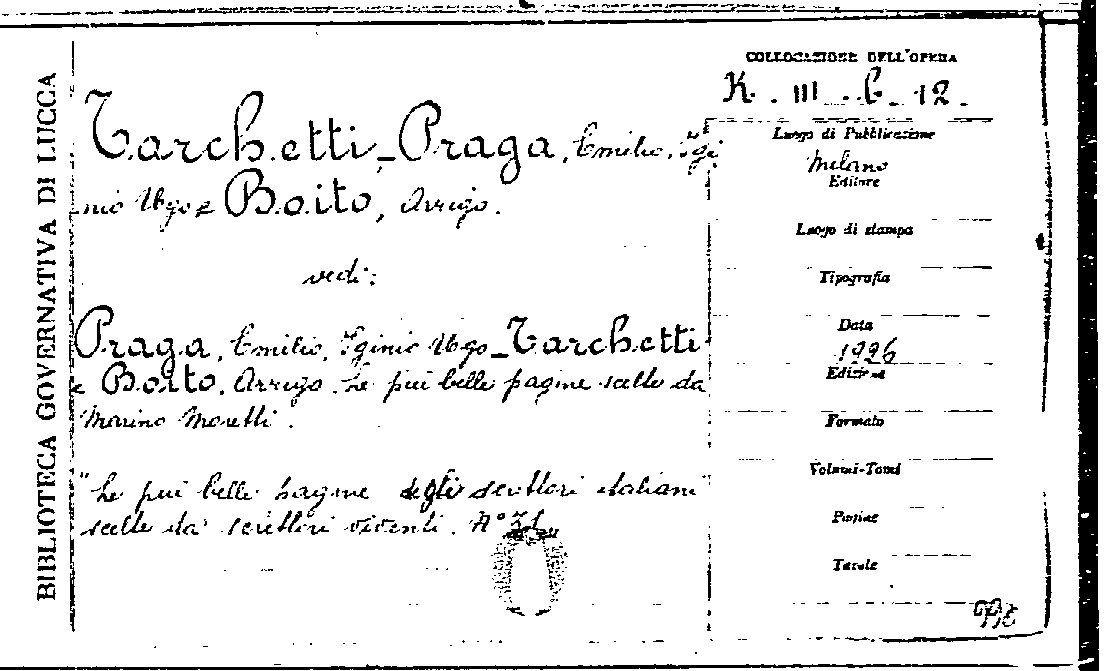 BIBLIOTECA GOVERNATIVA DI LUCCA
COLLOCAZIONE DELL'OPERA
K. III. 6. 12.
Tarchetti-Praga, Emilio, Igi
nio Ugo e Boito, Arrigo.
vedi:
Praga, Emilio, Iginio Ugo-Tarchetti
e Boito, Arrigo. Le più belle pagine scelte da
Marino Moretti.
"Le più belle pagine degli scrittori italiani"
scelte da scrittori viventi. N°
Luogo di Pubblicazione
Milano
Editore
Luogo di stampa
Tipografia
Data
1926
Edizione
Formato
Volumi-Tomi
Pagine
Tavole